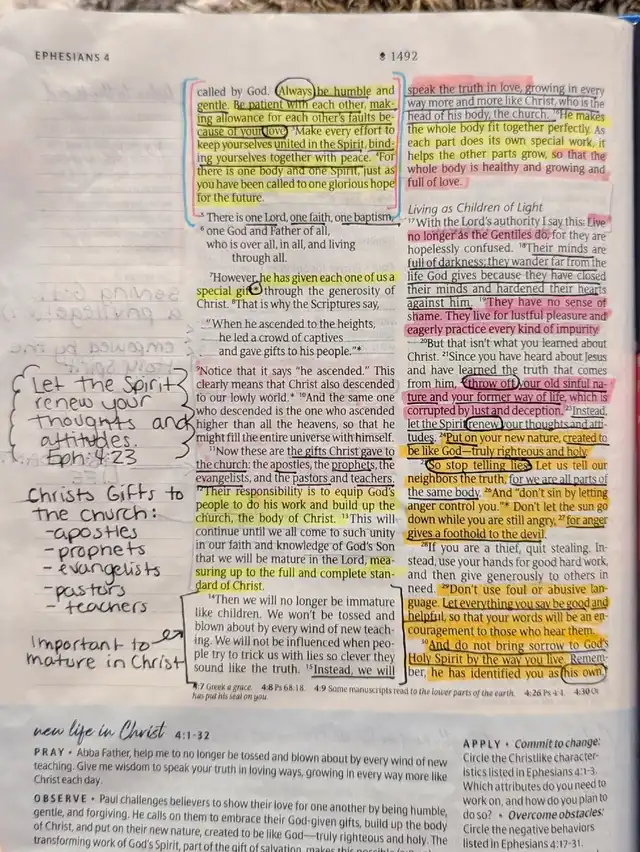 EPHESIANS 4
1492
called by God. Always be humble and
gentle. Be patient with each other, mak-
ing allowance for each other's faults be-
cause of your love. 3Make every effort to
keep yourselves united in the Spirit, bind-
ing yourselves together with peace. 4For
there is one body and one Spirit, just as
you have been called to one glorious hope
for the future.
5 There is one Lord, one faith, one baptism,
6 one God and Father of all,
who is over all, in all, and living
through all.
7However, he has given each one of us a
special gift through the generosity of
Christ. 8That is why the Scriptures say,
“When he ascended to the heights,
he led a crowd of captives
and gave gifts to his people.”*
9Notice that it says “he ascended.” This
clearly means that Christ also descended
to our lowly world.* 10And the same one
who descended is the one who ascended
higher than all the heavens, so that he
might fill the entire universe with himself.
11Now these are the gifts Christ gave to
the church: the apostles, the prophets, the
evangelists, and the pastors and teachers.
12Their responsibility is to equip God's
people to do his work and build up the
church, the body of Christ. 13This will
continue until we all come to such unity
in our faith and knowledge of God's Son
that we will be mature in the Lord, mea-
suring up to the full and complete stan-
dard of Christ.
14Then we will no longer be immature
like children. We won't be tossed and
blown about by every wind of new teach-
ing. We will not be influenced when peo-
ple try to trick us with lies so clever they
sound like the truth. 15Instead, we will
speak the truth in love, growing in every
way more and more like Christ, who is the
head of his body, the church. 16He makes
the whole body fit together perfectly. As
each part does its own special work, it
helps the other parts grow, so that the
whole body is healthy and growing and
full of love.
Living as Children of Light
17With the Lord's authority I say this: Live
no longer as the Gentiles do, for they are
hopelessly confused. 18Their minds are
full of darkness; they wander far from the
life God gives because they have closed
their minds and hardened their hearts
against him. 19They have no sense of
shame. They live for lustful pleasure and
eagerly practice every kind of impurity.
20But that isn't what you learned about
Christ. 21Since you have heard about Jesus
and have learned the truth that comes
from him, 22throw off your old sinful na-
ture and your former way of life, which is
corrupted by lust and deception. 23Instead,
let the Spirit renew your thoughts and atti-
tudes. 24Put on your new nature, created to
be like God—truly righteous and holy.
25So stop telling lies. Let us tell our
neighbors the truth, for we are all parts of
the same body. 26And “don't sin by letting
anger control you.”* Don't let the sun go
down while you are still angry, 27for anger
gives a foothold to the devil.
28If you are a thief, quit stealing. In-
stead, use your hands for good hard work,
and then give generously to others in
need. 29Don't use foul or abusive lan-
guage. Let everything you say be good and
helpful, so that your words will be an en-
couragement to those who hear them.
30And do not bring sorrow to God's
Holy Spirit by the way you live. Remem-
ber, he has identified you as his own,
Let the Spirit
renew your
thoughts and
attitudes.
Eph. 4:23
Christs Gifts to
the church:
-apostles
-prophets
-evangelists
-pastors
-teachers
Important to
mature in Christ
4:7 Greek a grace. 4:8 Ps 68:18. 4:9 Some manuscripts read to the lower parts of the earth. 4:26 Ps 4:4. 4:30 Or
has put his seal on you.
new life in Christ 4:1-32
PRAY • Abba Father, help me to no longer be tossed and blown about by every wind of new
teaching. Give me wisdom to speak your truth in loving ways, growing in every way more like
Christ each day.
OBSERVE • Paul challenges believers to show their love for one another by being humble,
gentle, and forgiving. He calls on them to embrace their God-given gifts, build up the body
of Christ, and put on their new nature, created to be like God—truly righteous and holy. The
transforming work of God's Spirit, part of the gift of salvation, makes this possible
APPLY • Commit to change:
Circle the Christlike character-
istics listed in Ephesians 4:1-3.
Which attributes do you need to
work on, and how do you plan to
do so? • Overcome obstacles:
Circle the negative behaviors
listed in Ephesians 4:17-31.